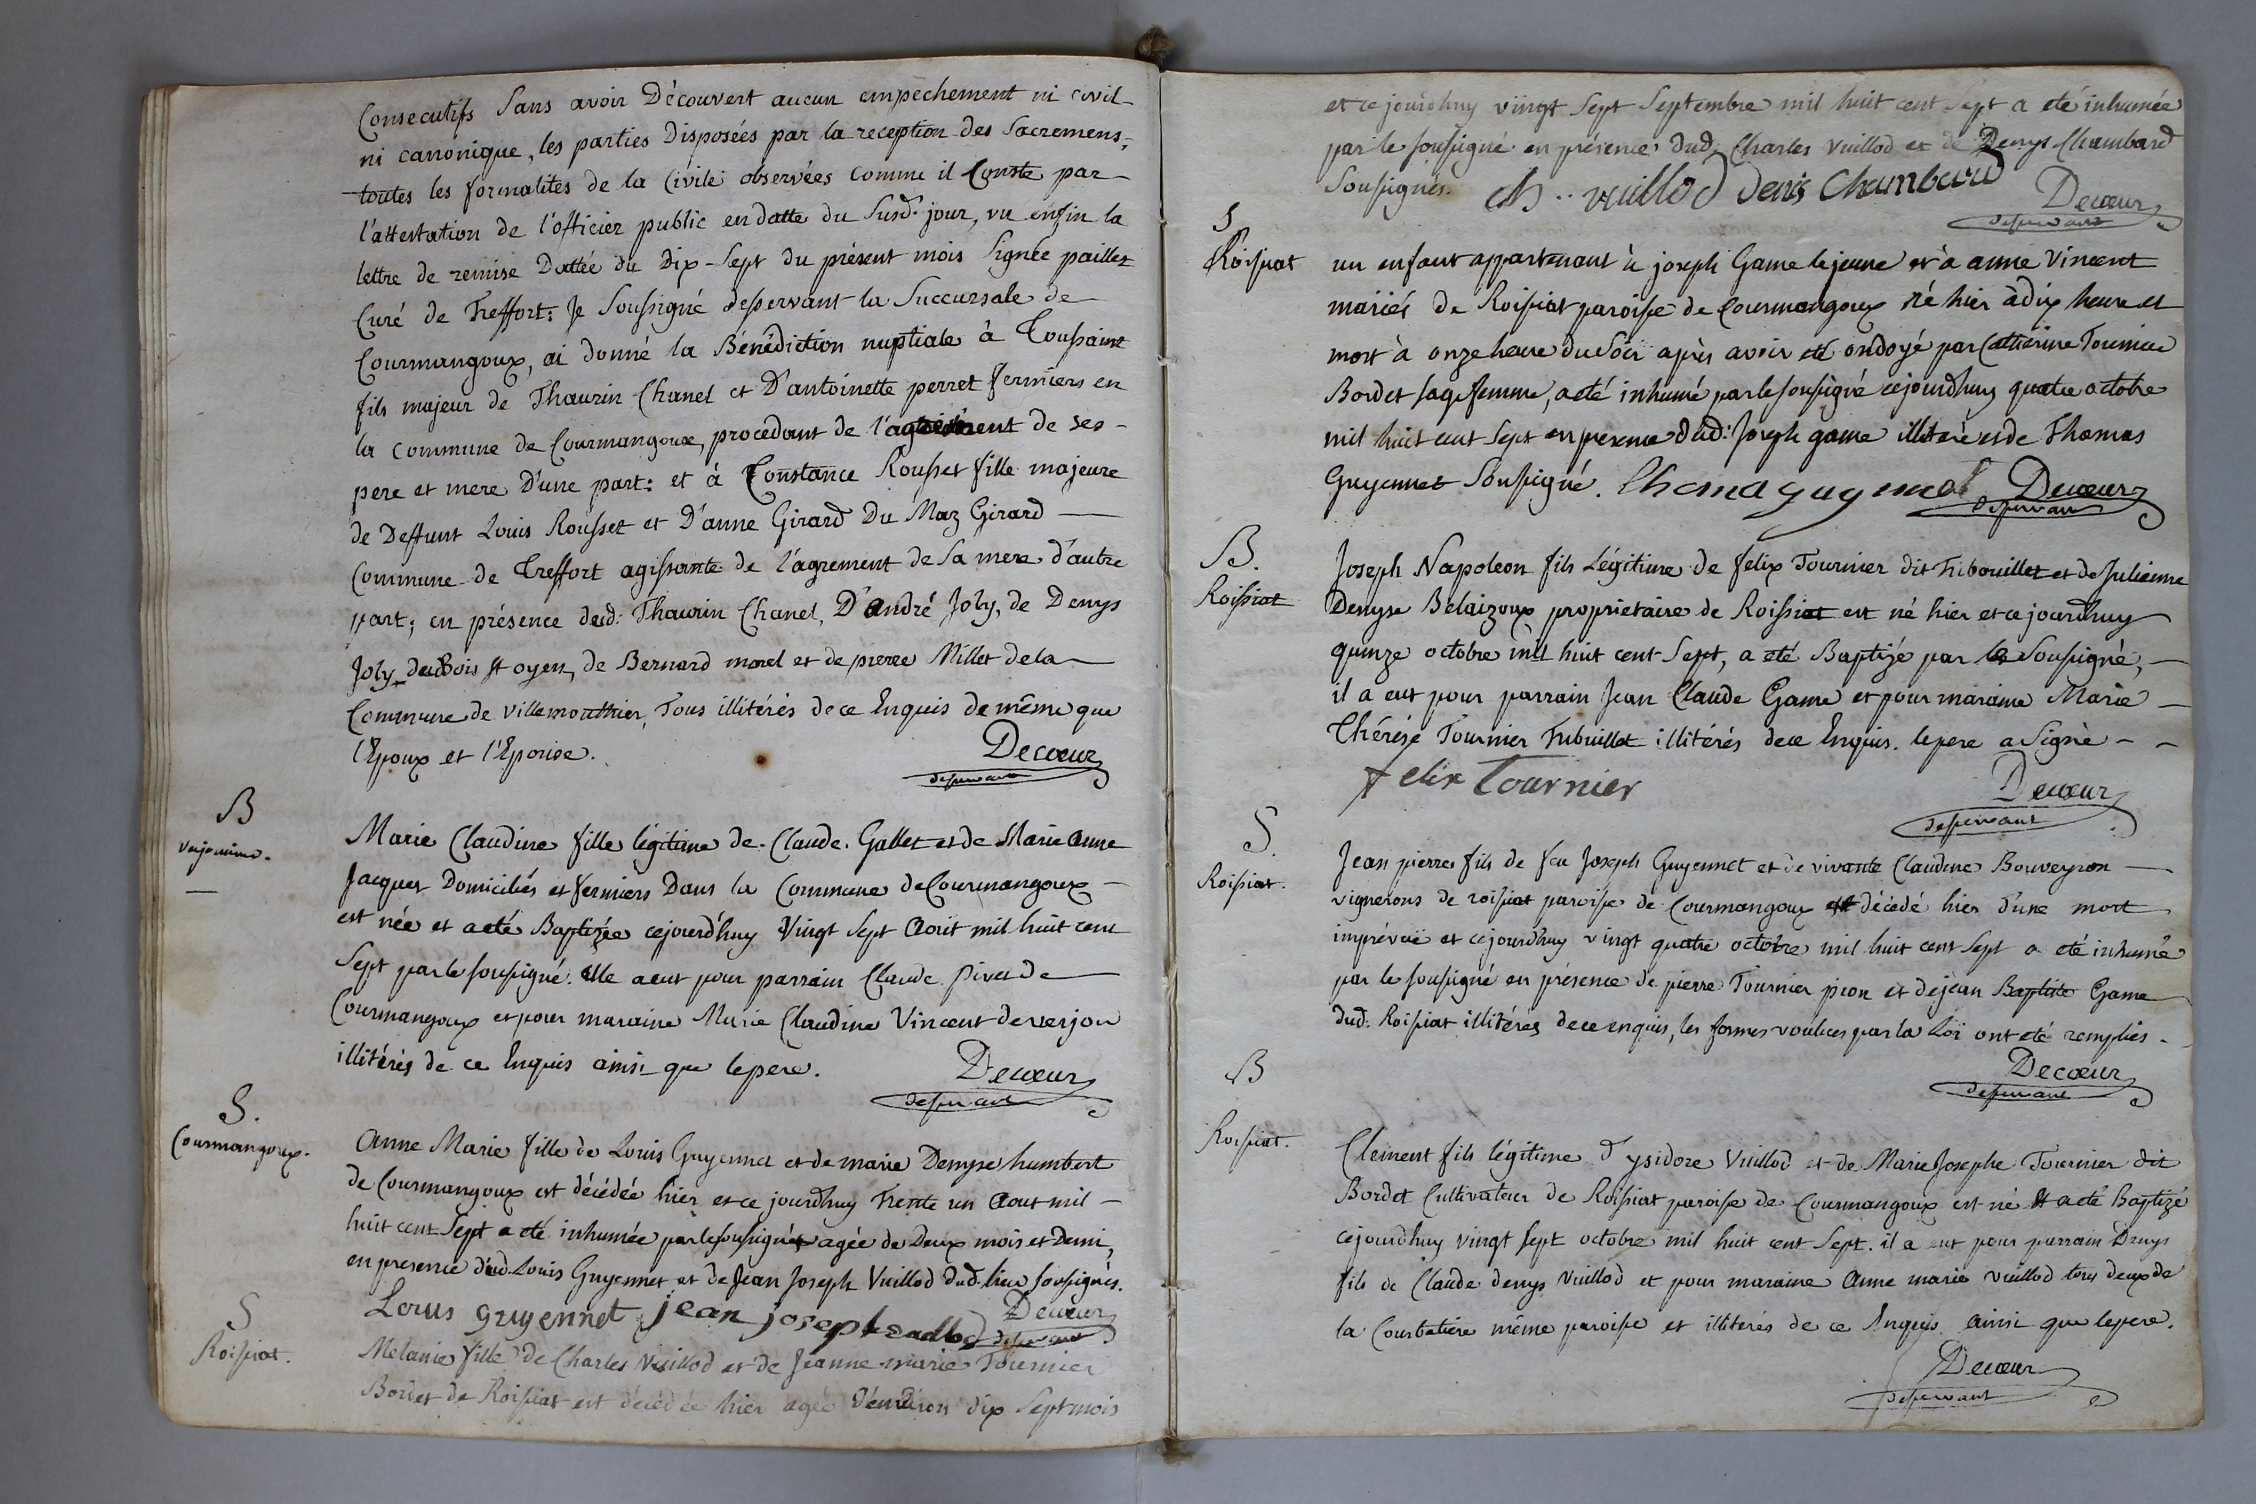 Consecutifs Sans avoir Découvert aucun empechement ni civil
ni canonique, les parties Disposées par la reception des Sacremens,
toutes les formalités de la Civile observées comme il Conste par
l'attestation de l'officier public en datte du Susd. jour, vu enfin la
lettre de remise Dattée du Dix-Sept du présent mois Signée paillet
Curé de Treffort: Je Soussigné desservant la Succursale de
Courmangoux, ai donné la Bénédiction nuptiale à Toussaint
fils majeur de Thaurin Chanel et D'antoinette perret fermiers en
la commune de Courmangoux, procedant de l'agrément de ses
pere et mere D'une part: et à Constance Rousset fille majeure
de Deffunt Louis Rousset et D'anne Girard Du Maz Girard
Commune de Treffort agissante de l'agrement de Sa mere d'autre
part; en présence dud: Thaurin Chanel, D'andré Joly, de Denys
Joly, de Bernard morel et de pierre Millet de la
Commune de villemouthier, Tous illitérés de ce Enquis de même que
l'Epoux et l'Epouse.
Decœur
desservant
B
Marie Claudine fille légitime de Claude Gallet et de Marie Anne
Jacquet Domiciliés et fermiers Dans la Commune de Courmangoux
est née et a eté Baptizée cejourd'huy Vingt Sept Aout mil huit cent
Sept par le soussigné. Elle a eut pour parrain Claude Pivet de
Courmangoux et pour maraine Marie Claudine Vincent de verjon
illitérés de ce Enquis ainsi que le pere.
Decœur
desservant
S.
Courmangoux.
Anne Marie fille de Louis Guyennet et de marie Denyse humbert
de Courmangoux est décédée hier et ce jourdhuy Trente un Aout mil
huit cent Sept a eté inhumée par le soussigné agée de Deux mois et Demi,
en presence dud. Louis Guyennet et de Jean Joseph Vuillod dud. lieu soussignés.
Louis guyennet jean joseph
Decœur
desservant
S
Roissiat.
Melanie fille de Charles Vuillod et de Jeanne marie Tournier
Bordet de Roissiat est décédée hier agée d'environ dix Sept mois
et ce jourdhuy viingt Sept Septembre mil huit cent Sept a eté inhumée
par le soussigné en présence dud. Charles Vuillod et de Denys Chambard
Soussignés. Ch.. vuillod Denis Chambard
Decœur
desservant
S
Roissiat
un enfant appartenant à joseph Game le jeune et à anne Vincent
mariés de Roissiat paroisse de Courmangoux né hier à dix heure et
mort à onze heure du Soir après avoir eté ondoyé par Catherine Tournier
Bordet sage femme, a eté inhumé par le soussigné cejourdhuy quatre octobre
mil huit cent Sept en presence dud: Joseph game illiteré et de Thomas
Guyennet Soussigné. Thoma guyennet
Decœur
desservant
B.
Roissiat
Joseph Napoleon fils Légitime de felix Tournier dit Tribouillet et de Julienne
Denyse Belaizoux proprietaire de Roissiat est né hier et ce jourdhuy
quinze octobre mil huit cent Sept, a eté Baptizé par le Soussigné,
il a eut pour parrain Jean Claude Game et pour maraine Marie
Thérése Tournier Tribuillet illitérés de ce Enquis. le pere a Signé
felix Tournier
Decœur
desservant
S.
Roissiat.
Jean pierre fils de feu Joseph Guyennet et de vivante Claudine Bouveyron
vignerons de roissiat paroisse de Courmangoux est décédé hier d'une mort
imprévuë et cejourdhuy vingt quatre octobre mil huit cent Sept a eté inhumé
par le soussigné en présence de pierre Tournier pion et de jean Baptiste Game
dud. Roissiat illitérés de ce enquis, les formes voulues par la Loi ont eté remplies.
Decœur
desservant
B
Roissiat.
Clement fils légitime d'ysidore Vuillod et de Marie Josephe Tournier dit
Bordet Cultivateur de Roissiat paroisse de Courmangoux est né et a eté Baptizé
cejourdhuy vingt sept octobre mil huit cent Sept. il a eut pour parrain Denys
fils de Claude denys Vuillod et pour maraine Anne marie vuillod tous deux de
la Courbatiere même paroisse et illiterés de ce Enquis ainsi que le pere.
Decœur
desservant